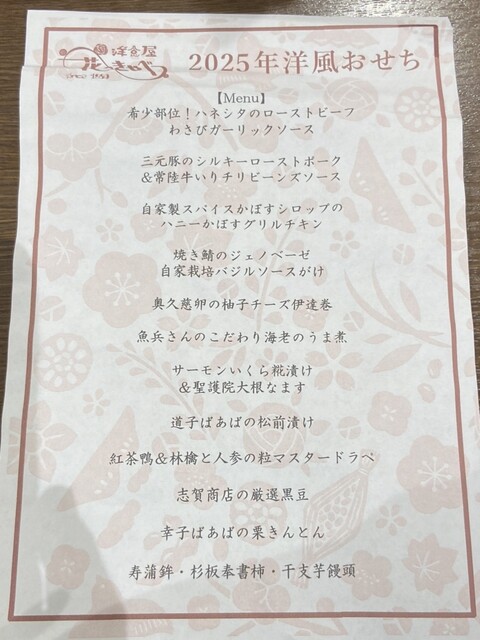 洋食屋
花きゃべつ
2025年洋風おせち
【Menu】
希少部位！ハネシタのローストビーフ
わさびガーリックソース
三元豚のシルキーローストポーク
＆常陸牛いりチリビーンズソース
自家製スパイスかぼすシロップの
ハニーかぼすグリルチキン
焼き鯖のジェノベーゼ
自家栽培バジルソースがけ
奥久慈卵の柚子チーズ伊達巻
魚兵さんのこだわり海老のうま煮
サーモンいくら糀漬け
＆聖護院大根なます
道子ばあばの松前漬け
紅茶鴨＆林檎と人参の粒マスタードラペ
志賀商店の厳選黒豆
幸子ばあばの栗きんとん
寿蒲鉾・杉板奉書柿・干支芋饅頭